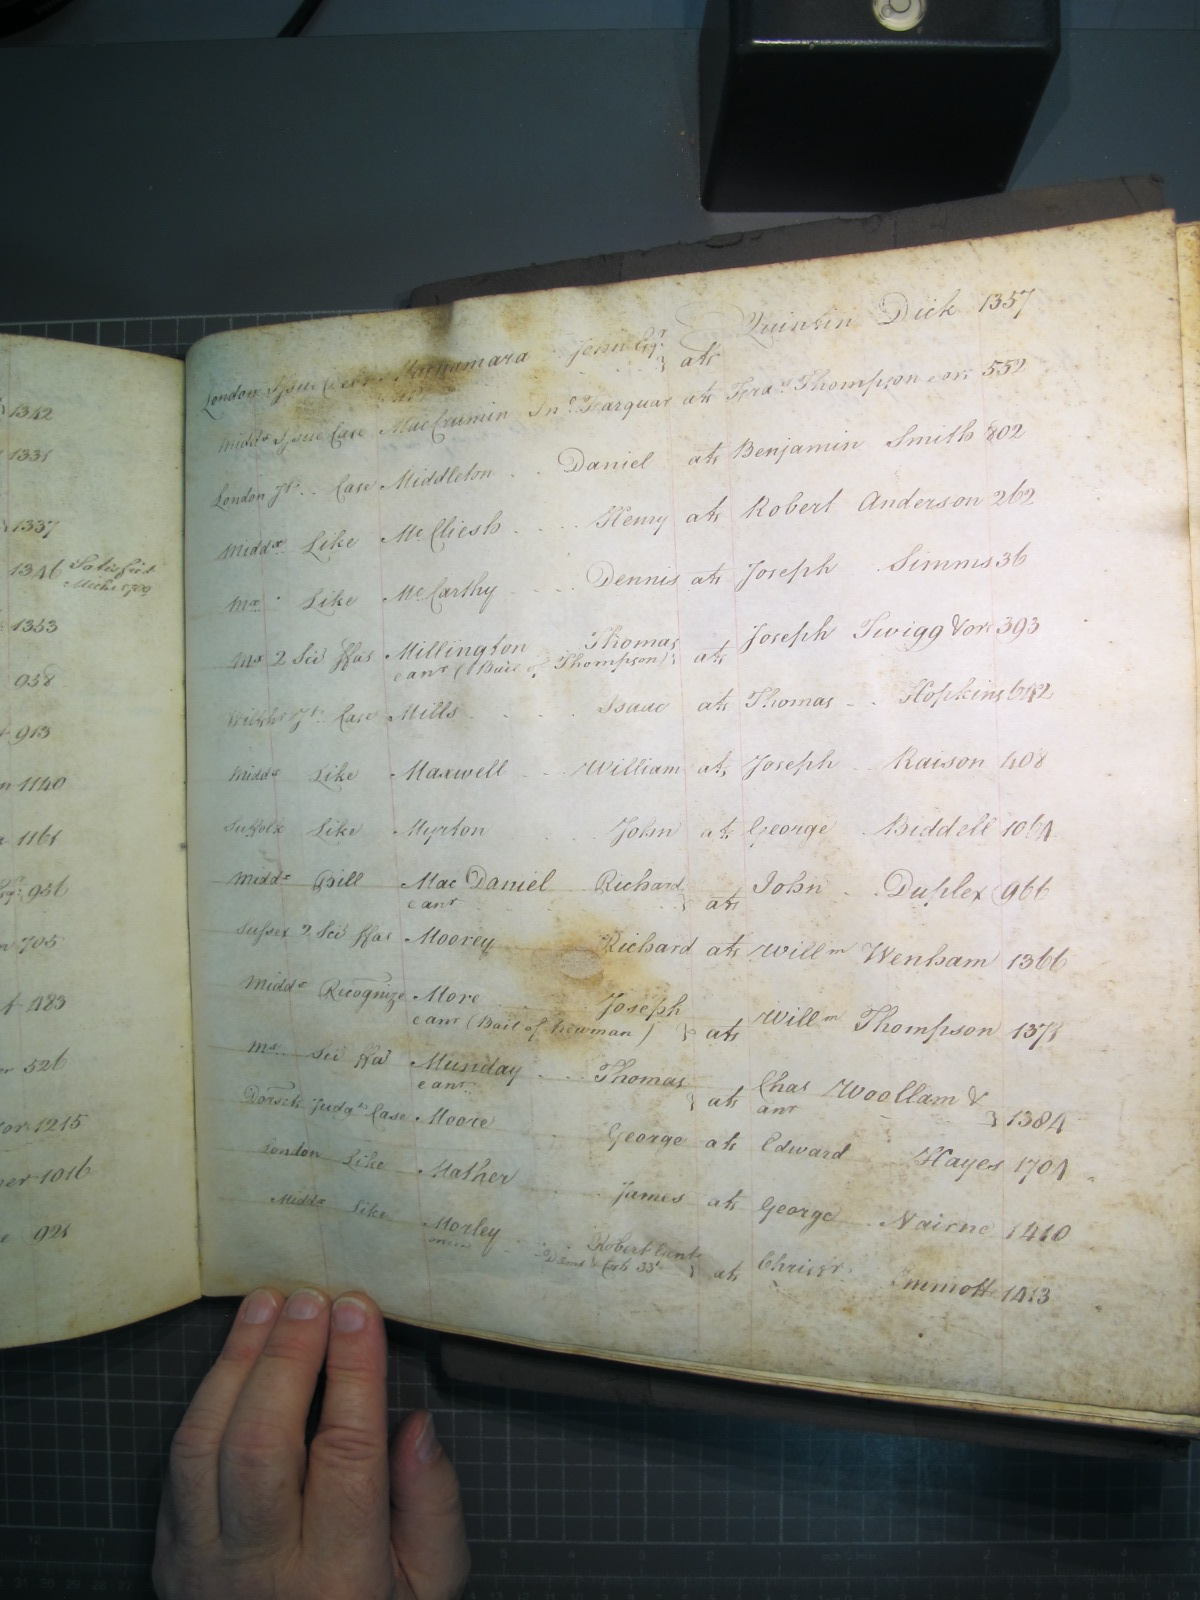 1342
1331
1337
1346 Satisfied
Mich's 1789
1353
958
913
1140
1161
951
705
483
526
1215
1016
921
London Issue Macnamara John Esqr } ats Quintin Dick 1357
Middx Issue Case MacCrumin Jno Farquar ats Fras Thompson 552
London Jt Case Middleton Daniel ats Benjamin Smith 802
Middx Like McCliesh Henry ats Robert Anderson 262
Mx Like McCarthy Dennis ats Joseph Simms 36
Mx 2 Sci ffas Millington Thomas } ats Joseph Twigg & or 393
eant (Bail of Thompson)
Wilts Jt Case Mills Isaac ats Thomas Hopkins 642
Middx Like Maxwell William ats Joseph Raison 408
Suffolk Like Myrton John ats George Biddell 1064
Middx Bill Mac Daniel Richard } ats John Duplex 966
eant
Sussex 2 Sci ffas Moorey Richard ats Willm Wenham 1366
Middx Recognize More Joseph } ats Willm Thompson 1371
eant (Bail of Newman)
Mx Sci ffas Munday Thomas } ats Chas Woollam & } 1384
eant anr
Dorset Judgt Case Moore George ats Edward Hayes 1704
London Like Mather James ats George Nairne 1410
Middx Like Morley Robert } ats Christr Immott 1413